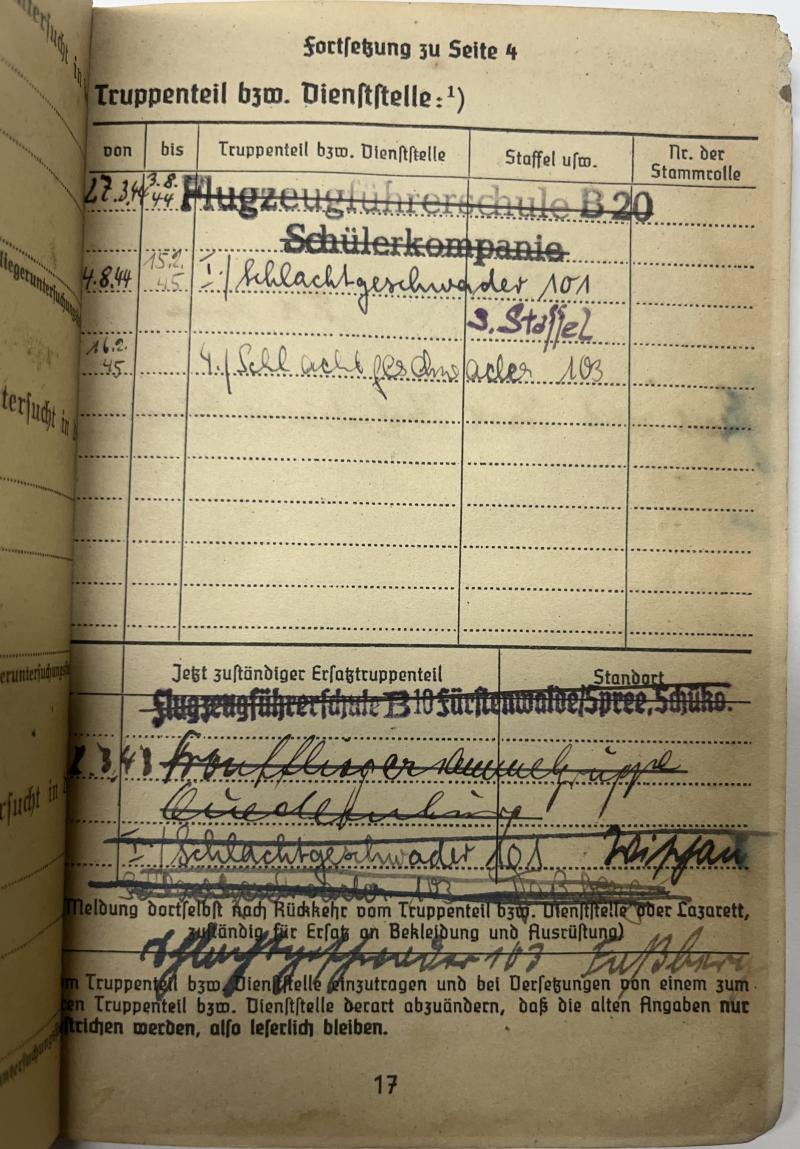 Fortsetzung zu Seite 4
Truppenteil bzw. Dienststelle:¹)
von bis Truppenteil bzw. Dienststelle Staffel usw. Nr. der Stammrolle
27.3.44 3.8.44 Flugzeugführerschule B 20
Schülerkompanie
4.8.44 15.2.45 I./Schlachtgeschwader 101
3. Staffel
16.2.45 4./Schlachtgeschwader 103
Jetzt zuständiger Ersatztruppenteil Standort
Flugzeugführerschule B 10 Fürstenwalde/Spree, Schüko.
Frontfliegersammelgruppe
Quedlinburg
I./Schlachtgeschwader 101 Wischau
103
Meldung dortselbst nach Rückkehr vom Truppenteil bzw. Dienststelle oder Lazarett,
zuständig für Ersatz an Bekleidung und Ausrüstung)
Schlachtgeschwader 103 Faßberg
Truppenteil bzw. Dienststelle einzutragen und bei Versetzungen von einem zum
Truppenteil bzw. Dienststelle derart abzuändern, daß die alten Angaben nur
werden, also leserlich bleiben.
17
untersucht in